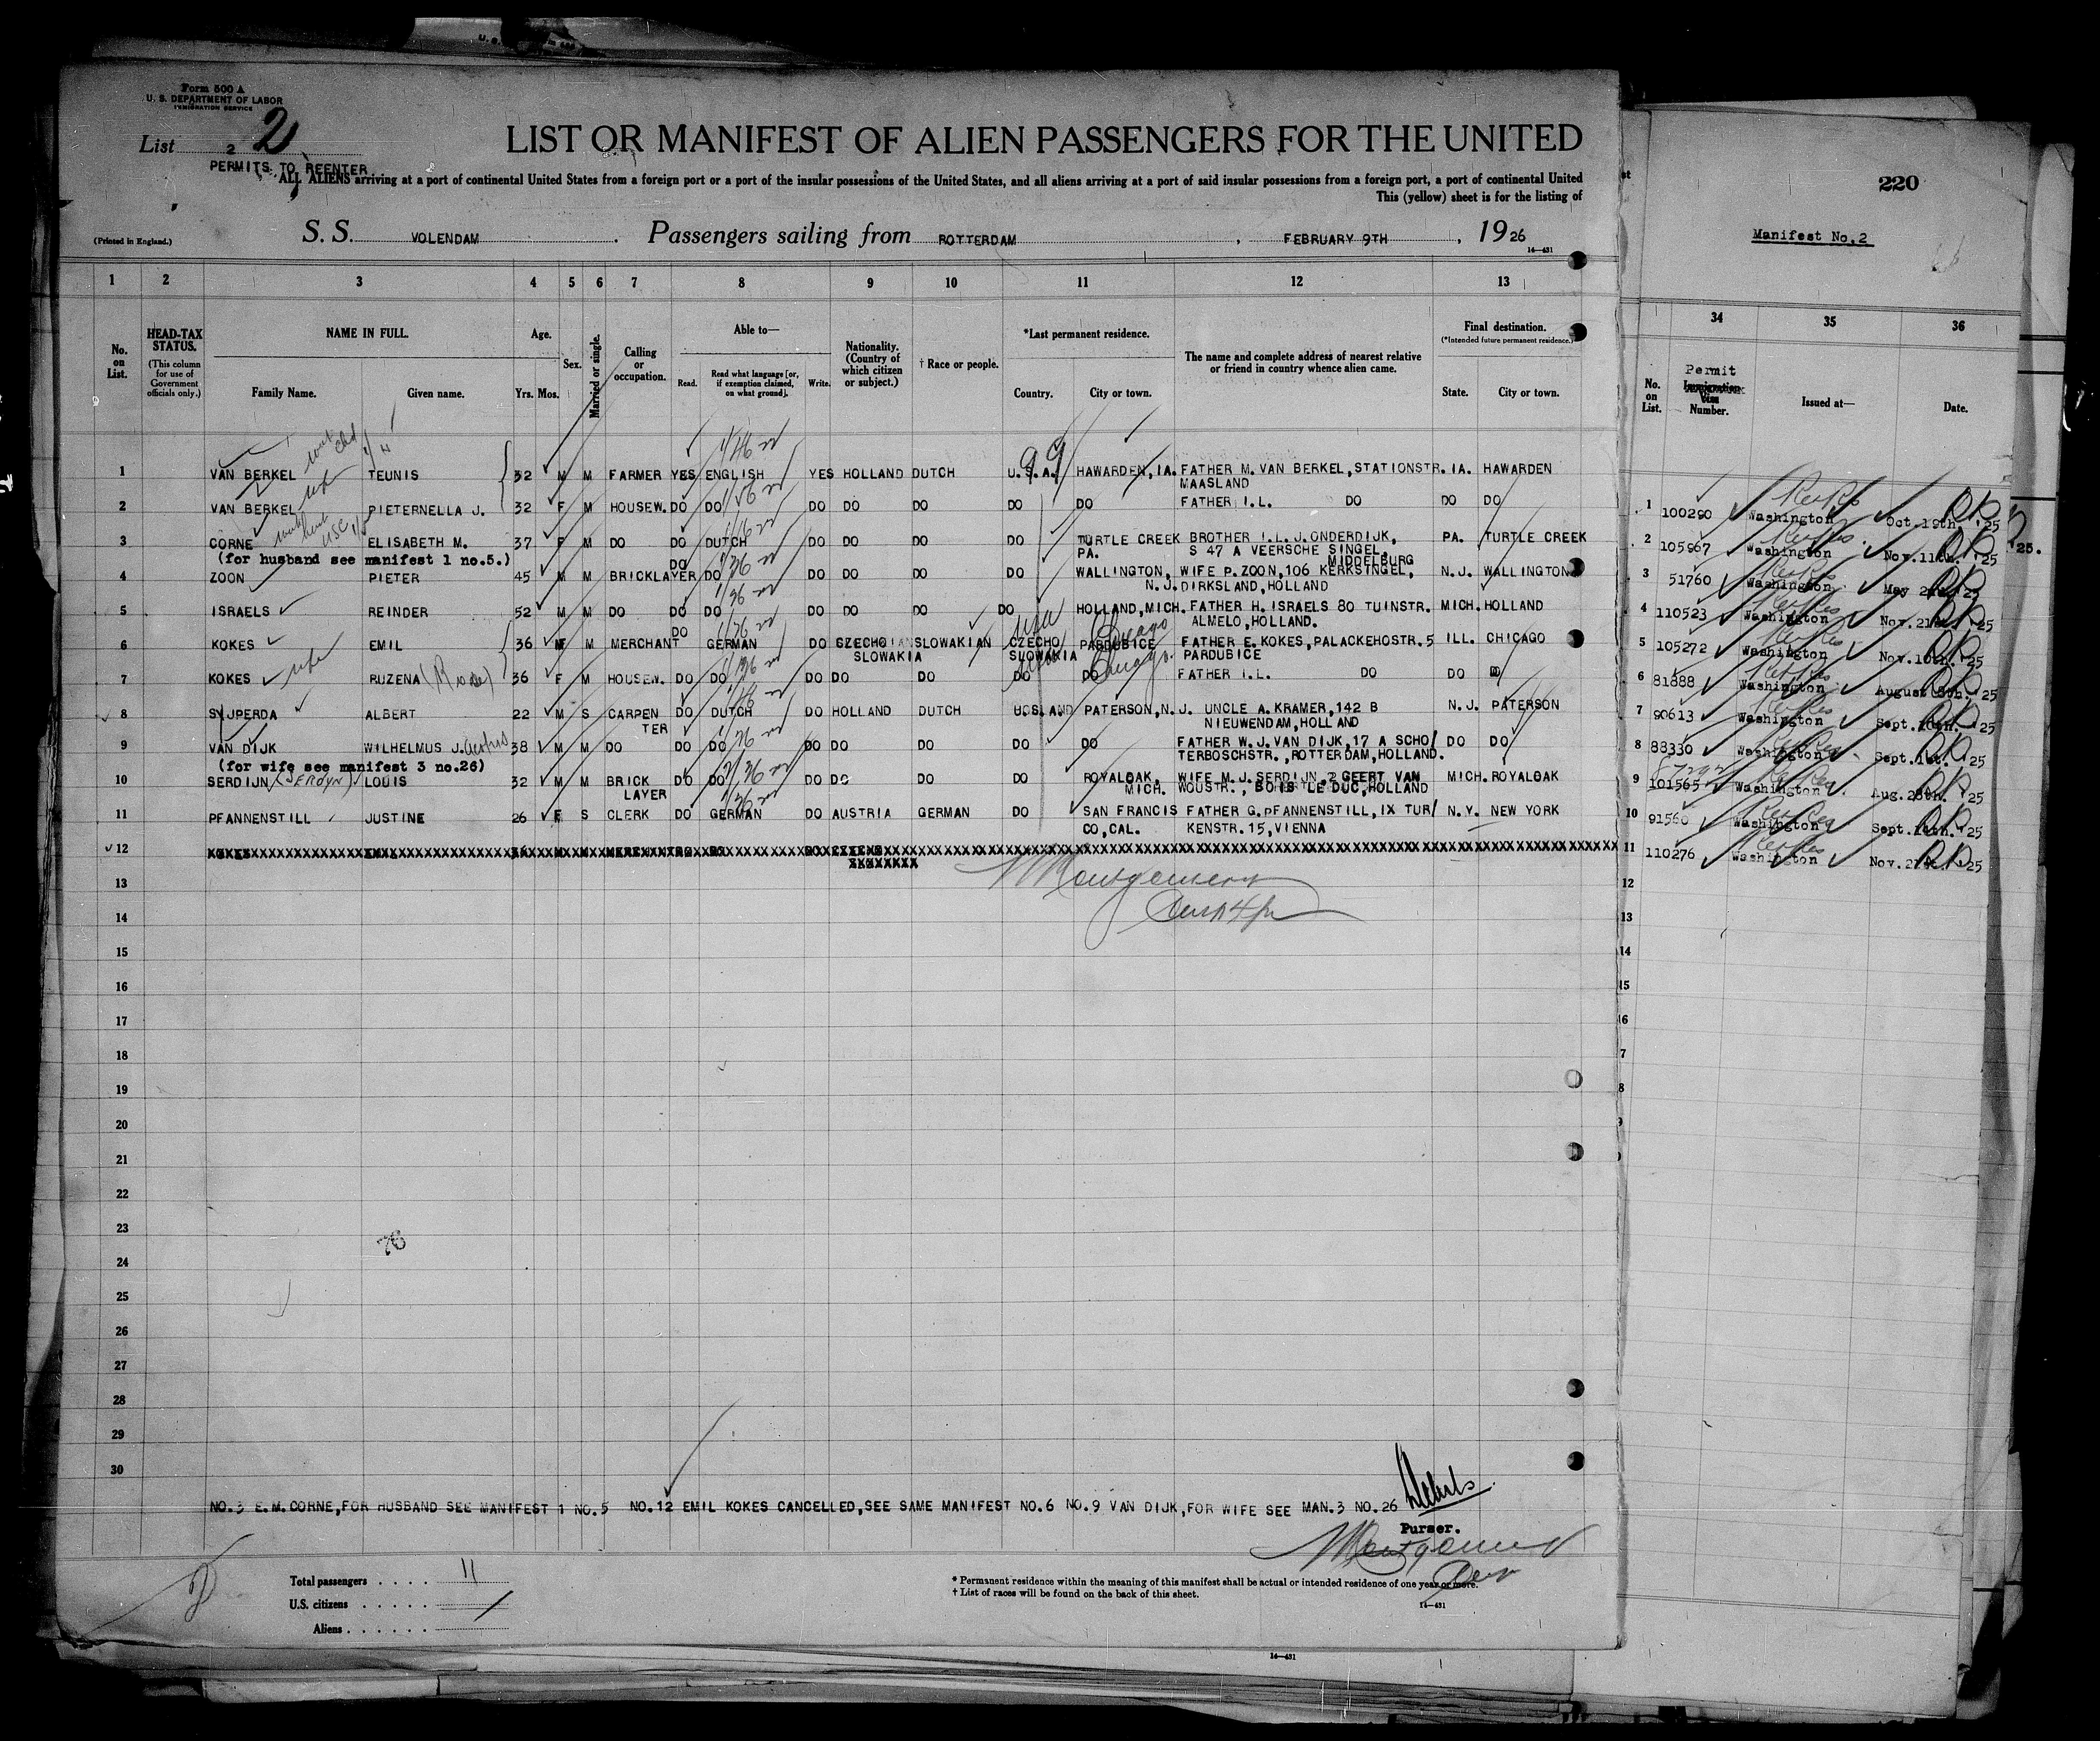 Form 500 A
U. S. DEPARTMENT OF LABOR
IMMIGRATION SERVICE
List 2 2
PERMITS TO REENTER
LIST OR MANIFEST OF ALIEN PASSENGERS FOR THE UNITED
ALL ALIENS arriving at a port of continental United States from a foreign port or a port of the insular possessions of the United States, and all aliens arriving at a port of said insular possessions from a foreign port, a port of continental United
This (yellow) sheet is for the listing of
(Printed in England.)
S. S. VOLENDAM . Passengers sailing from ROTTERDAM , FEBRUARY 9TH , 1926
14—431
220
Manifest No.2
1 2 3 4 5 6 7 8 9 10 11 12 13
34 35 36
No. on List.
HEAD-TAX STATUS.
(This column for use of Government officials only.)
NAME IN FULL.
Family Name. Given name.
Age.
Yrs. Mos.
Sex.
Married or single.
Calling or occupation.
Able to—
Read. Read what language [or, if exemption claimed, on what ground]. Write.
Nationality. (Country of which citizen or subject.)
† Race or people.
*Last permanent residence.
Country. City or town.
The name and complete address of nearest relative or friend in country whence alien came.
Final destination.
(*Intended future permanent residence.)
State. City or town.
No. on List.
Permit
Immigration Visa Number.
Issued at—
Date.
1 VAN BERKEL TEUNIS 32 M M FARMER YES ENGLISH YES HOLLAND DUTCH U.S.A. HAWARDEN,IA. FATHER M. VAN BERKEL,STATIONSTR. IA. HAWARDEN
MAASLAND
2 VAN BERKEL wife PIETERNELLA J. 32 F M HOUSEW. DO DO DO DO DO DO DO FATHER I.L. DO DO DO
3 CORNE ELISABETH M. 37 F M DO DO DUTCH DO DO DO DO TURTLE CREEK BROTHER I.L.J.ONDERDIJK, PA. TURTLE CREEK
(for husband see manifest 1 no.5.) PA. S 47 A VEERSCHE SINGEL, MIDDELBURG
4 ZOON PIETER 45 M M BRICKLAYER DO DO DO DO DO DO WALLINGTON, WIFE P.ZOON,106 KERKSINGEL, N.J. WALLINGTON
N.J. DIRKSLAND,HOLLAND
5 ISRAELS REINDER 52 M M DO DO DO DO DO DO DO HOLLAND,MICH. FATHER H. ISRAELS 80 TUINSTR. MICH. HOLLAND
ALMELO,HOLLAND.
6 KOKES EMIL 36 M M MERCHANT DO GERMAN DO CZECHO SLOWAKIA SLOWAKIAN CZECHO SLOWAKIA USA PARDUBICE Chicago FATHER E.KOKES,PALACKEHOSTR.5 ILL. CHICAGO
PARDUBICE
7 KOKES wife RUZENA (Rose) 36 F M HOUSEW. DO DO DO DO DO DO DO Chicago FATHER I.L. DO DO DO
8 SYJPERDA ALBERT 22 M S CARPENTER DO DUTCH DO HOLLAND DUTCH PATERSON,N.J. UNCLE A.KRAMER,142 B N.J. PATERSON
NIEUWENDAM,HOLLAND
9 VAN DIJK WILHELMUS J. 38 M M DO DO DO DO DO DO DO DO FATHER W.J.VAN DIJK,17 A SCHO/ DO DO
(for wife see manifest 3 no.26) TERBOSCHSTR.,ROTTERDAM,HOLLAND.
10 SERDIJN (SERDYN) LOUIS 32 M M BRICK LAYER DO DO DO DO DO DO ROYALOAK, MICH. WIFE M.J.SERDIJN,2 GEERT VAN MICH. ROYALOAK
WOUSTR., BOIS LE DUC,HOLLAND
11 PFANNENSTILL JUSTINE 26 F S CLERK DO GERMAN DO AUSTRIA GERMAN DO SAN FRANCIS FATHER G.PFANNENSTILL,IX TUR/ N.Y. NEW YORK
CO,CAL. KENSTR.15,VIENNA
12 KOKES EMIL
Montgomery
13
14
15
16
17
18
19
20
21
22
23
24
25
26
27
28
29
30
76
1 100290 Washington Oct.19th. '25
2 105967 Washington Nov.11th. '25
3 51760 Washington May '25
4 110523 Washington Nov.21st. '25
5 105272 Washington Nov.10th. '25
6 81888 Washington August 5th. '25
7 90613 Washington Sept. '25
8 88330 Washington Sept.1st. '25
9 101565 Washington Aug.28th. '25
10 91560 Washington Sept.14th. '25
11 110276 Washington Nov. '25
12
13
14
15
NO.3 E.M.CORNE,FOR HUSBAND SEE MANIFEST 1 NO.5 NO.12 EMIL KOKES CANCELLED,SEE SAME MANIFEST NO.6 NO.9 VAN DIJK,FOR WIFE SEE MAN.3 NO.26
Purser.
Montgomery
Total passengers . . . . 11
U.S. citizens . . . . .
Aliens . . . . . .
* Permanent residence within the meaning of this manifest shall be actual or intended residence of one year or more.
† List of races will be found on the back of this sheet.
14—431
14—431